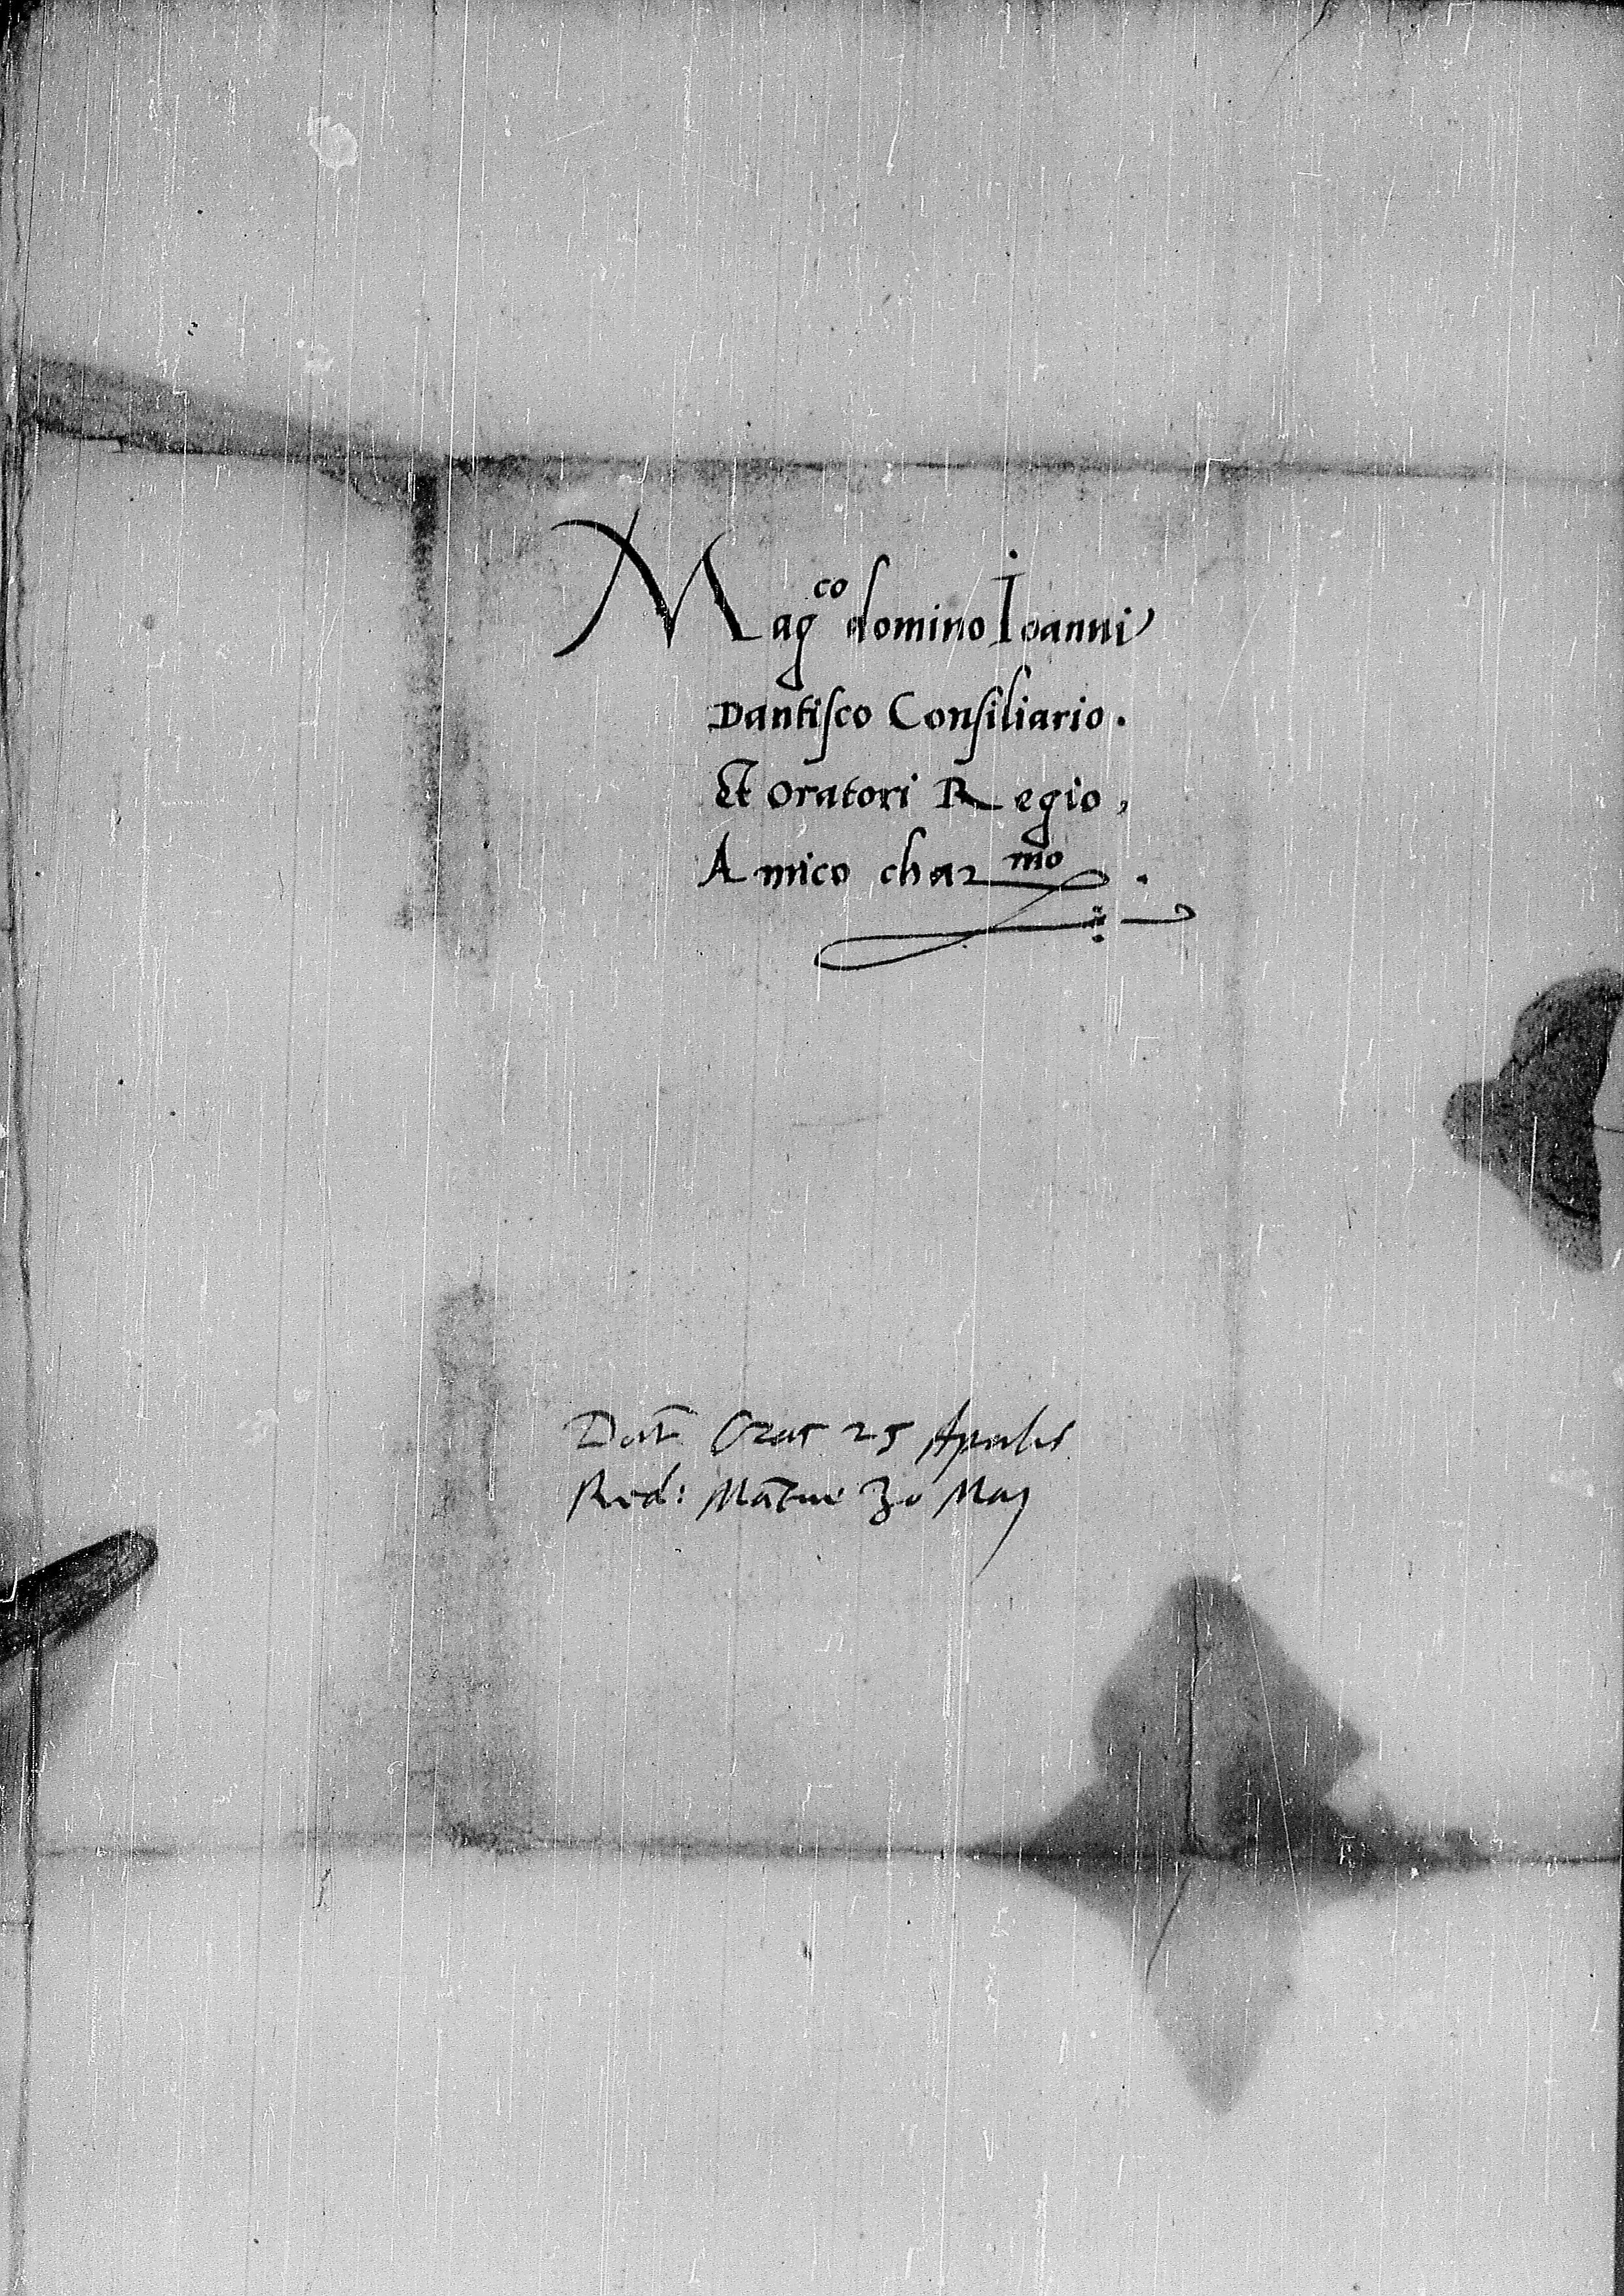 Mag^co domino Ioanni
Dantisco Consiliario.
Et Oratori Regio,
Amico char^mo.
Dat Crac 25 Aprilis
Red: Mātue 30 Maij